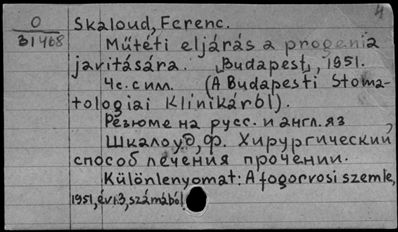 4
O
31468
Skaloud, Ferenc.
Műtéti eljárás a progenia
javitására. [Budapest], 1951.
4c. с илл. (A Budapesti Stoma-
tologiai Klinikáról).
Резюме на русс. и англ. яз
Шкалоуд, Ф. Хирургический
способ лечения прочении.
Különlenyomat: A fogorvosi szemle,
1951, évi 3, számából.